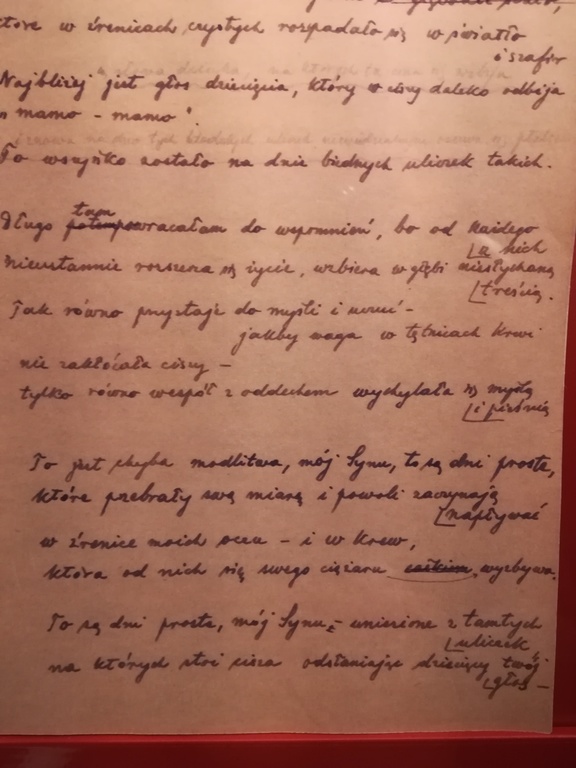 które w źrenicach czystych rozpadało się w światło
i szafir
Najbliżej jest głos dziecięcia, który w ciszy daleko odbija
" mamo - mamo ".
To wszystko zostało na dnie biednych uliczek takich.
Długo tam powracałam do wspomnień, bo od każdego
z nich
nieustannie rozszerza się życie, wzbiera w głębi niesłychaną
treścią.
Tak równo przystaje do myśli i uczuć -
jakby waga w tętnicach krwi
nie zakłócała ciszy -
tylko równo wespół z oddechem wychylała się myślą
i pieśnią
To jest chyba modlitwa, mój Synu, to są dni proste,
które przebrały swą miarę i powoli zaczynają
napływać
w źrenice moich oczu - i w krew,
która od nich się swego ciężaru całkiem wyzbywa.
To są dni proste, mój Synu, - uniesione z tamtych
uliczek
na których stoi cisza odsłaniając dziecięcy twój
głos -